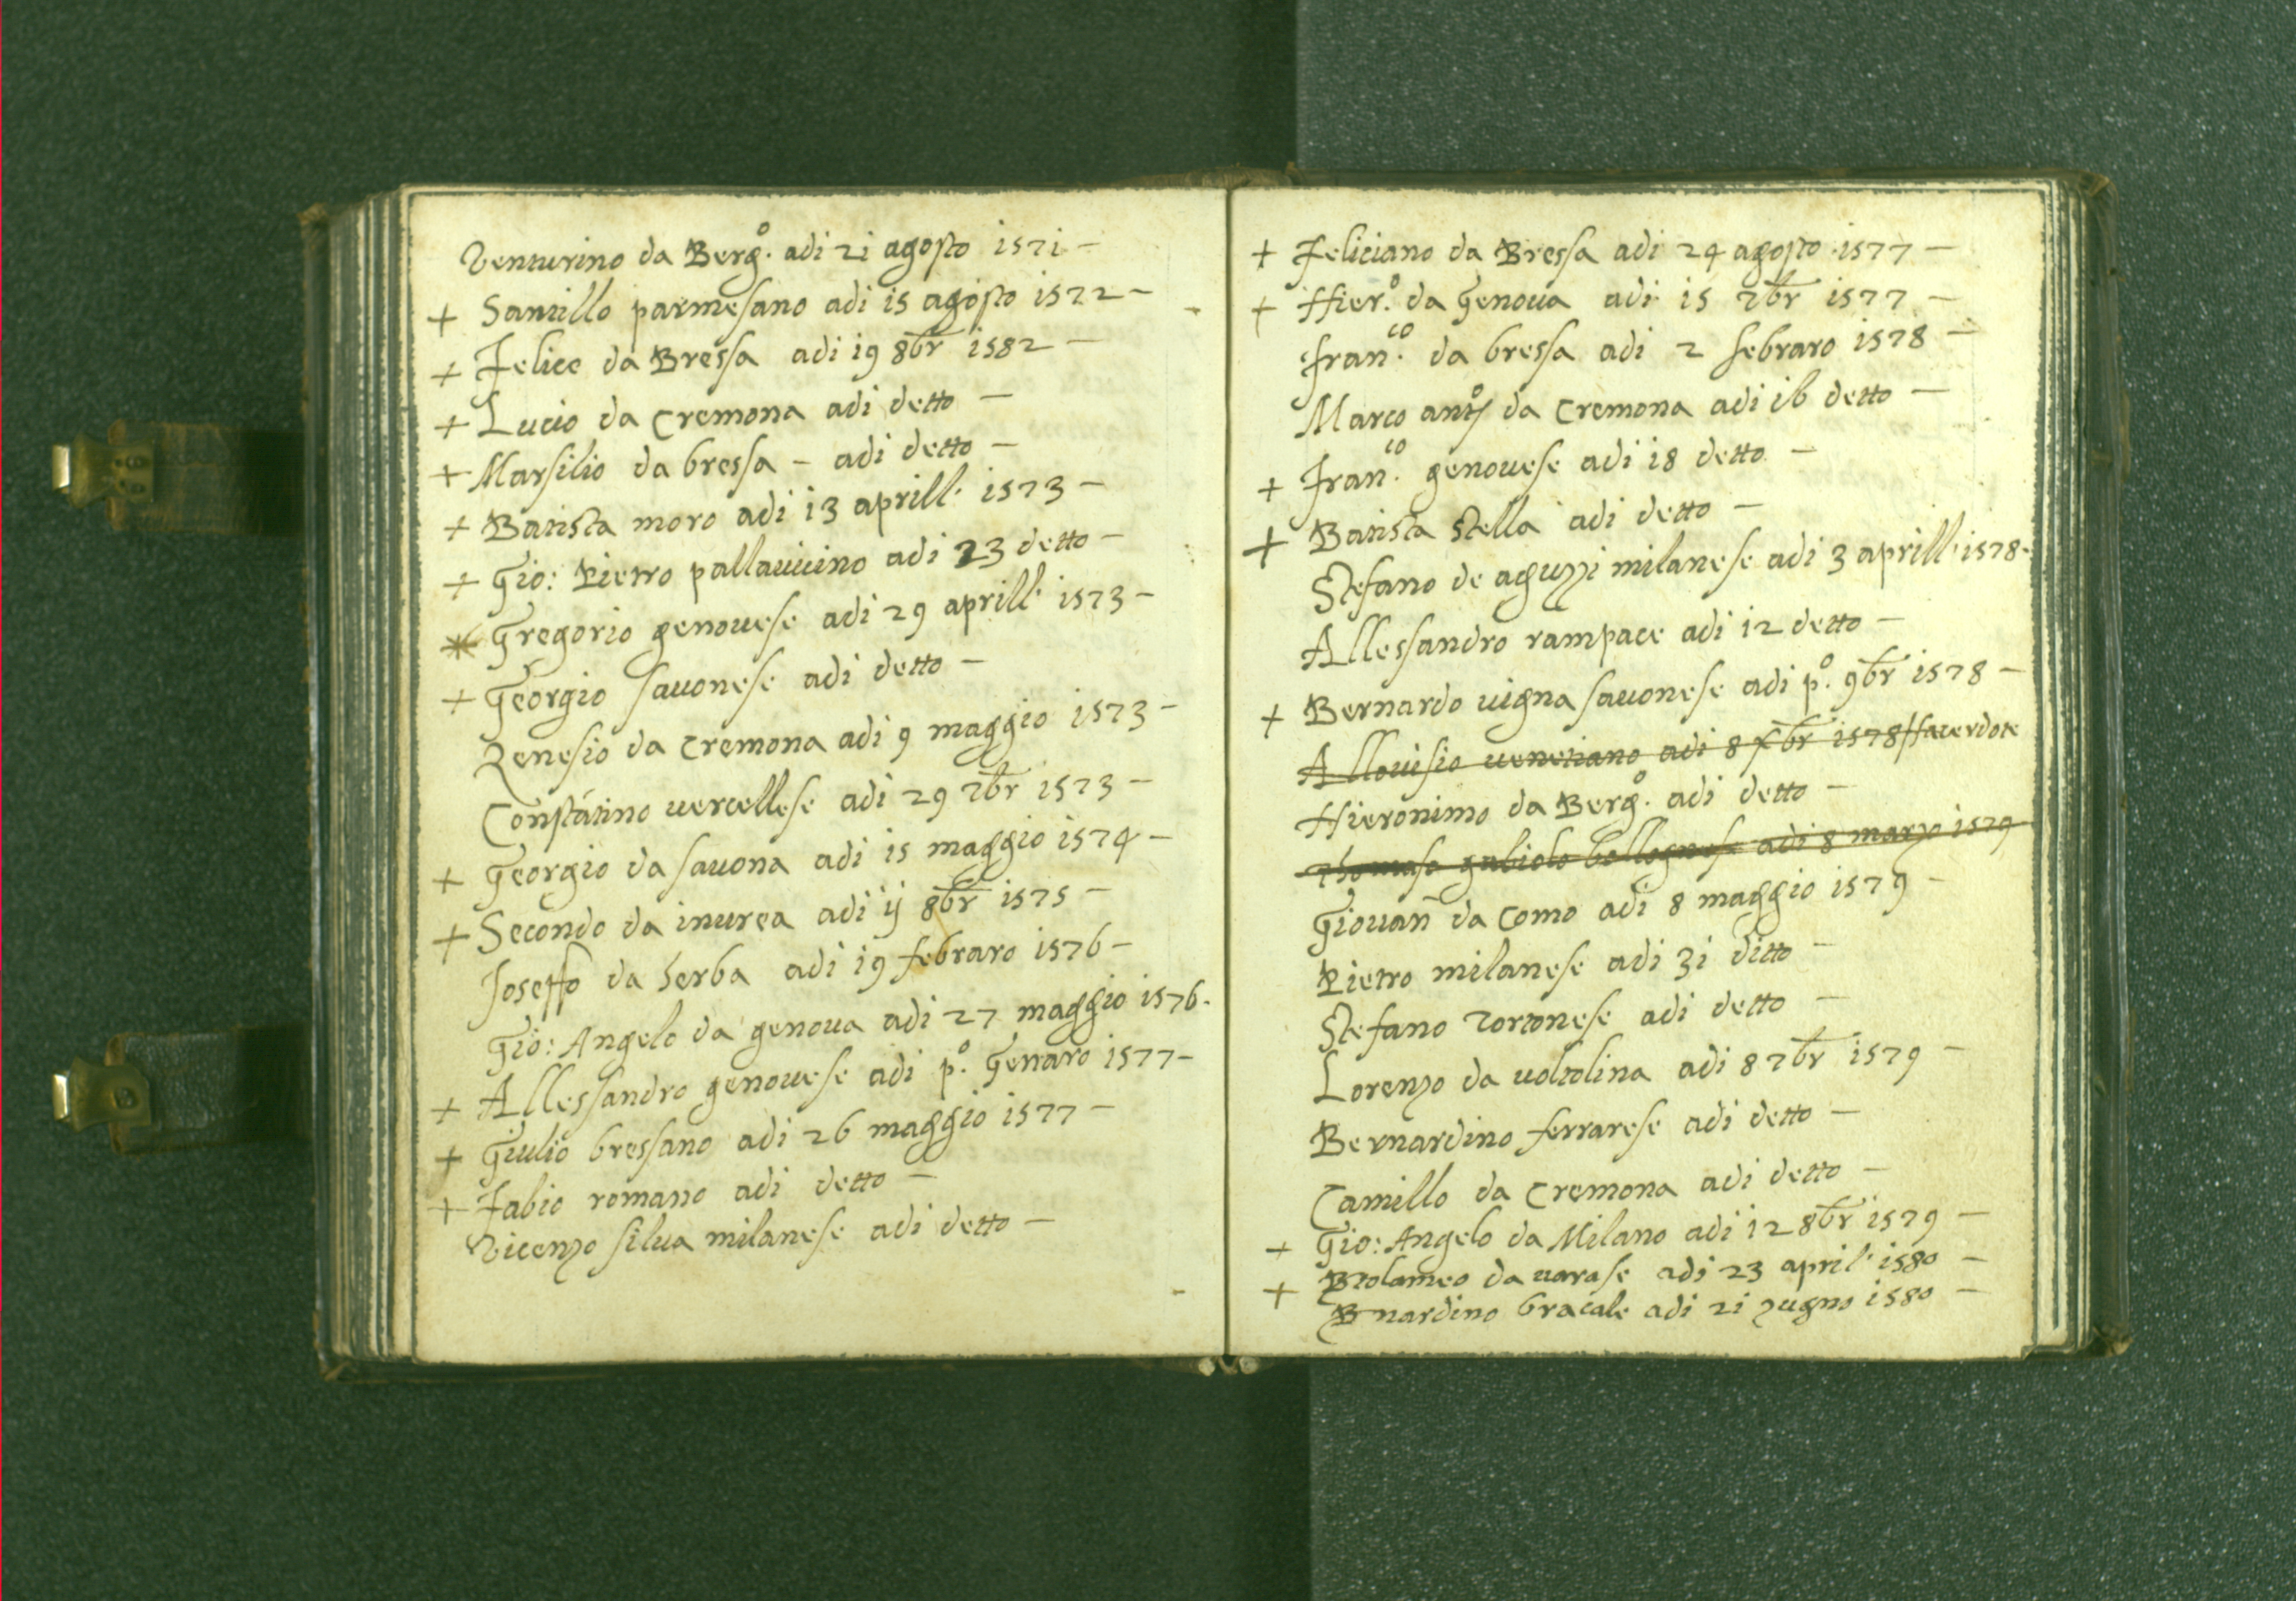 Venturino da Berg.º adi 21 agosto 1571 –
+ Santillo parmesano adi 15 agosto 1572 –
+ Felice da Bressa adi 19 8br 1582 –
+ Lucio da Cremona adi detto –
+ Marsilio da bressa – adi detto –
+ Batista moro adi 13 aprill. 1573 –
+ Gio: Pietro pallavicino adi 23 detto –
* Gregorio genovese adi 29 aprill. 1573 –
+ Georgio savonese adi detto –
Zenesio da Cremona adi 9 maggio 1573 –
Constãtino vercellese adi 29 7br 1573 –
+ Georgio da savona adi 15 maggio 1574 –
+ Secondo da inurea adi ij 8br 1575 –
Joseffo da serba adi 19 febraro 1576 –
Gio: Angelo da genova adi 27 maggio 1576.
+ Allessandro genouese adi p.º Genaro 1577 –
+ Giulio bressano adi 26 maggio 1577 –
+ Fabio romano adi detto –
Vicenzo silva milanese adi detto –
+ Feliciano da Bressa adi 24 agosto 1577 –
+ Hier.º da Genoua adi 15 7br 1577 –
fran.co da bressa adi 2 febraro 1578 –
Marco antº da Cremona adi 16 detto –
+ Fran.co genouese adi 18 detto –
+ Batista Stella adi detto –
Stefano de aguzzi milanese adi 3 aprill. 1578 –
Allessandro rampace adi 12 detto –
+ Bernardo vigna savonese adi p.º 9br 1578 –
Allouisio venetiano adi 8 Xbr 1578 sacerdote
Hieronimo da Berg.º adi detto –
Thomaso gabiolo bollognese adi 8 marzo 1579
Giovañ da Como adi 8 maggio 1579 –
Pietro milanese adi 31 ditto –
Stefano Tortonese adi detto –
Lorenzo da voltolina adi 8 7br 1579 –
Bernardino ferrarese adi detto –
Camillo da Cremona adi detto –
+ Gio: Angelo da Milano adi 12 8br 1579 –
+ Btolameo da varase adi 23 april. 1580 –
Bnardino bracale adi 21 zugno 1580 –